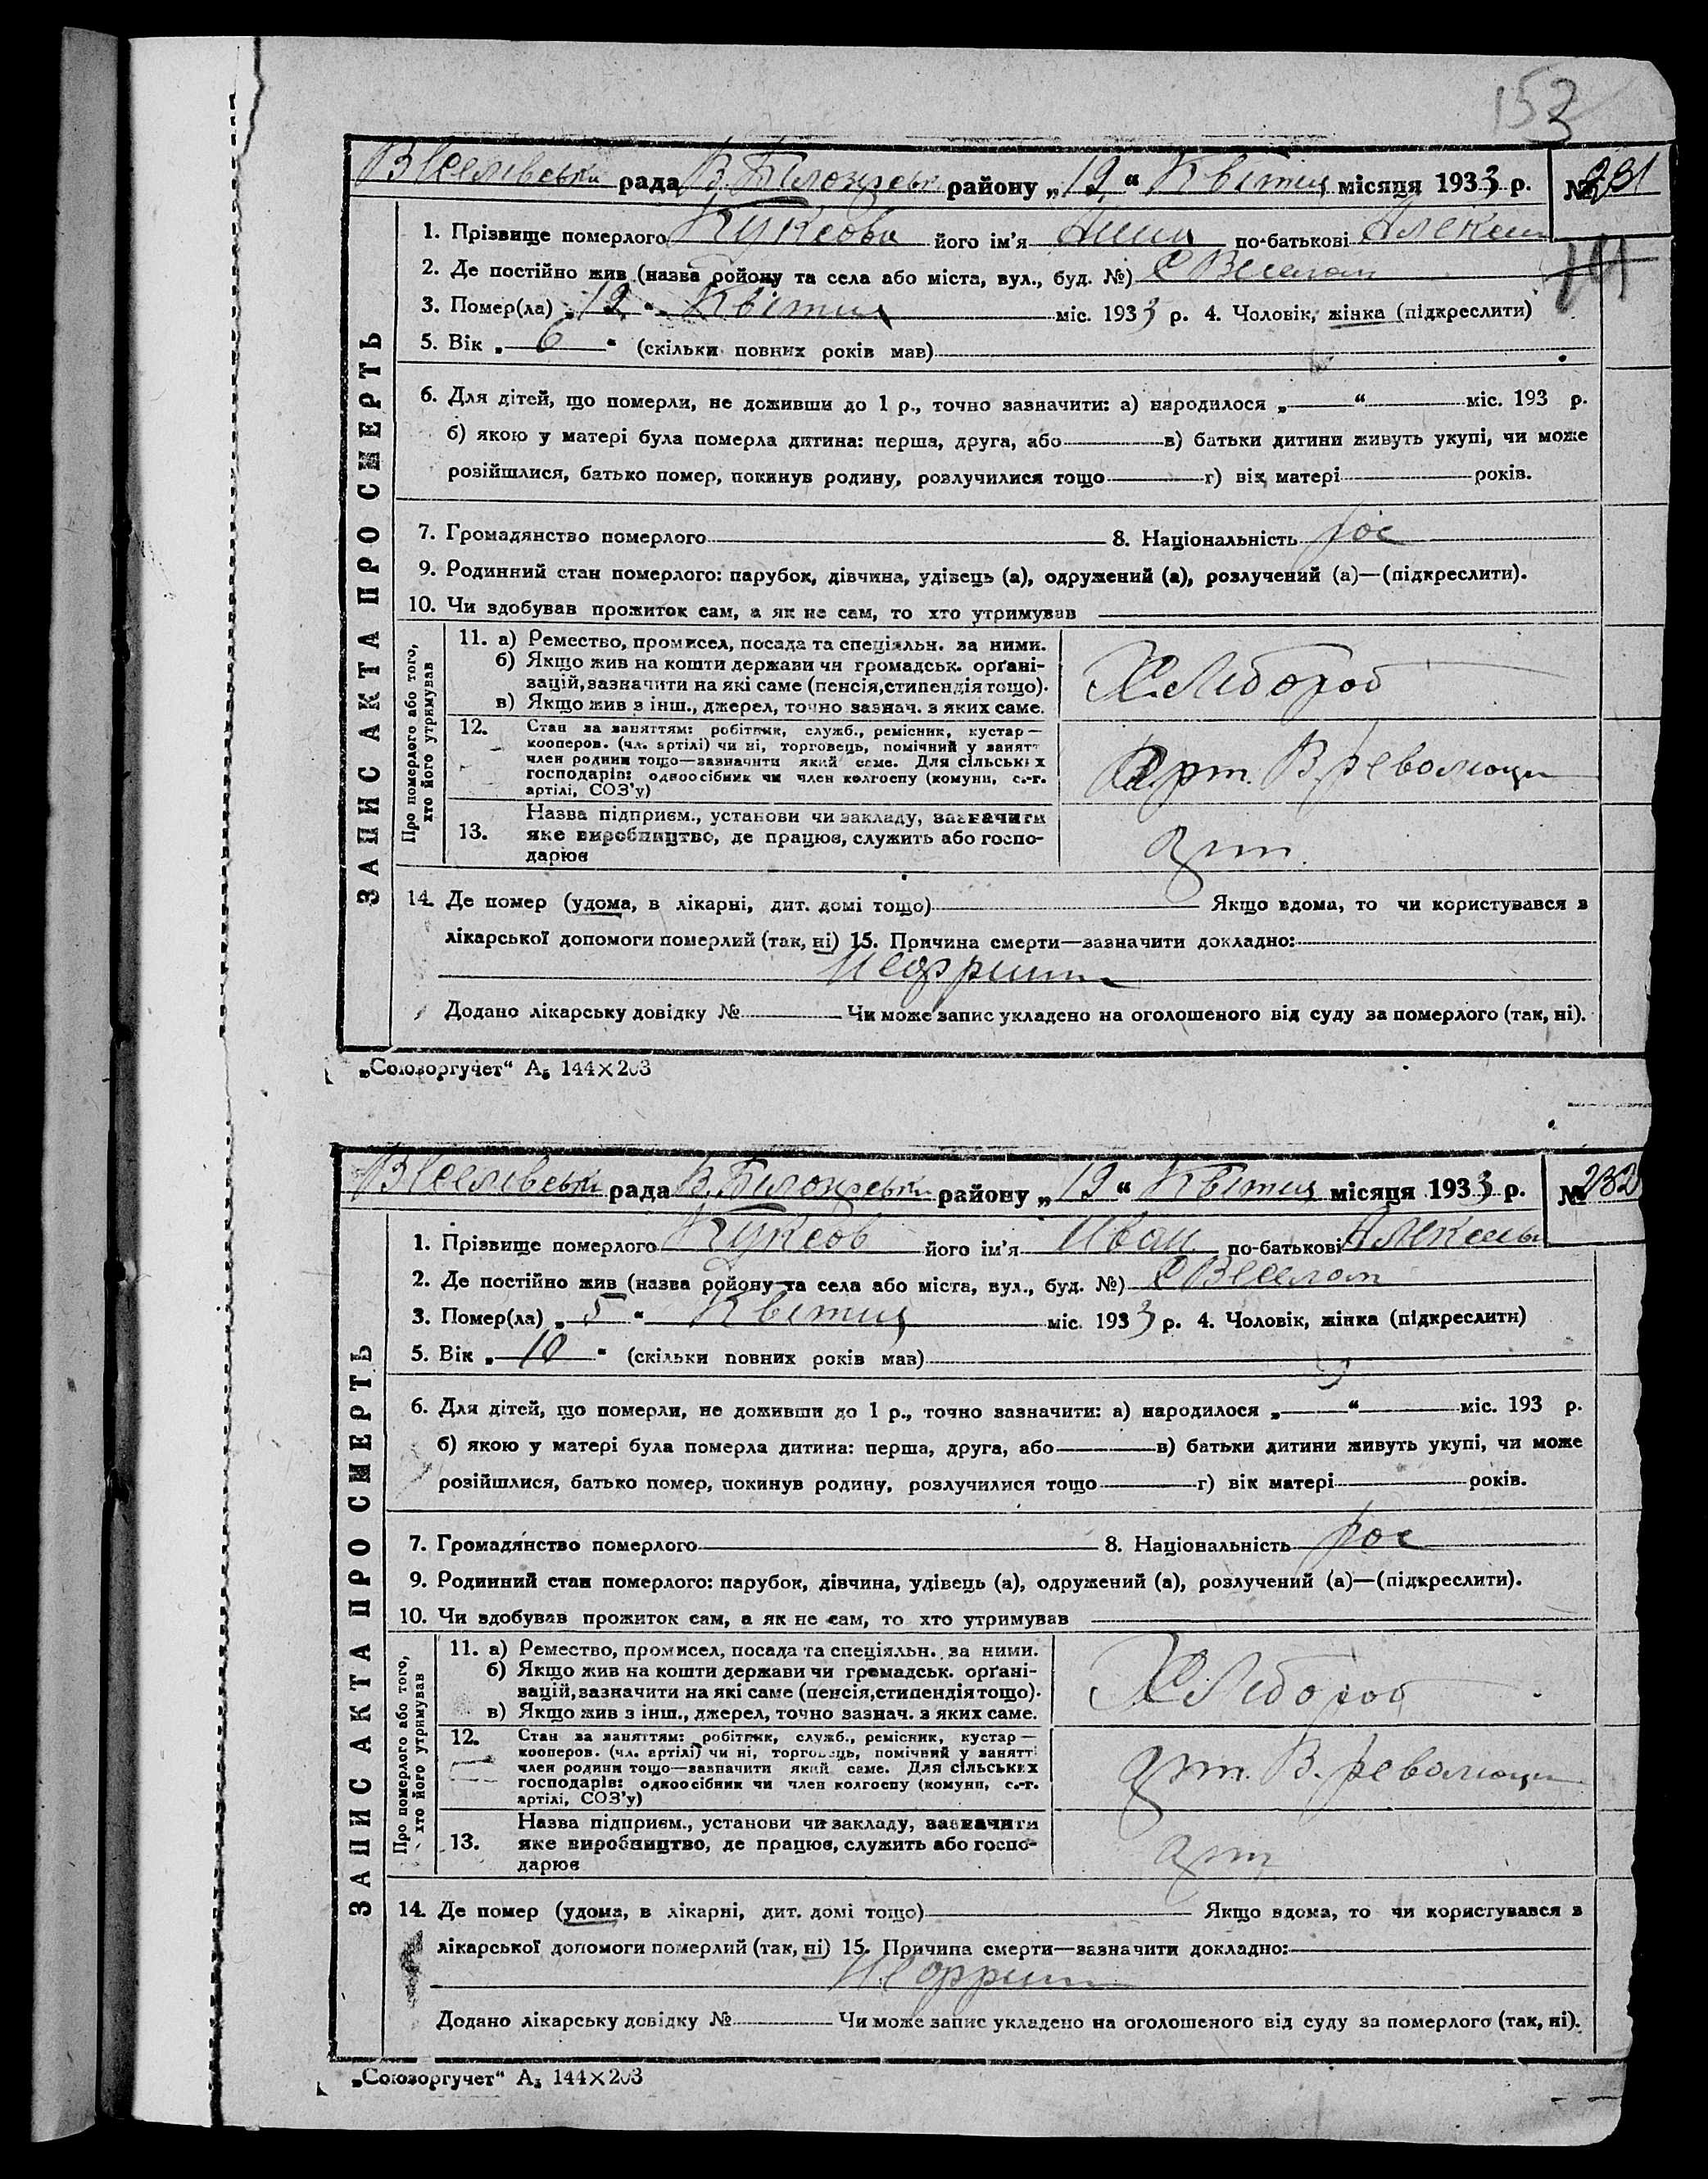 153
Веселівська рада В. Білозірськ району „12“ Квітня місяця 1933 р. № 231
1. Прізвище померлого Куксова його ім'я Анна по-батькові Алексе
2. Де постійно жив (назва ройону та села або міста, вул., буд. №) С Веселом
3. Помер(ла) „12“ Квітня міс. 1933 р. 4. Чоловік, жінка (підкреслити)
5. Вік „6“ (скільки повних років мав)
6. Для дітей, що померли, не доживши до 1 р., точно зазначити: а) народилося „ “ міс. 193 р.
б) якою у матері була померла дитина: перша, друга, або в) батьки дитини живуть укупі, чи може
розійшлися, батько помер, покинув родину, розлучилися тощо г) вік матері років.
7. Громадянство померлого 8. Національність рос
9. Родинний стан померлого: парубок, дівчина, удівець (а), одружений (а), розлучений (а)—(підкреслити).
10. Чи здобував прожиток сам, а як не сам, то хто утримував
ЗАПИС АКТА ПРО СМЕРТЬ
Про померлого або того, хто його утримував
11. а) Ремество, промисел, посада та спеціяльн. за ними.
б) Якщо жив на кошти держави чи громадськ. орґані-
зацій, зазначити на які саме (пенсія, стипендія тощо).
в) Якщо жив з інш., джерел, точно зазнач. з яких саме.
Хлібороб
12. Стан за заняттям: робітник, служб., ремісник, кустар—
кооперов. (чл. артілі) чи ні, торговець, помічний у занятт
член родини тощо—зазначити який саме. Для сільських
господарів: одноосібник чи член колгоспу (комуни, с.-г.
артілі, СОЗ'у)
Арт. В. революци
13. Назва підприєм., установи чи закладу, зазначити
яке виробництво, де працює, служить або госпо-
дарює
арт.
14. Де помер (удома, в лікарні, дит. домі тощо) Якщо вдома, то чи користувався в
лікарської допомоги померлий (так, ні) 15. Причина смерти—зазначити докладно:
Нефрит
Додано лікарську довідку № Чи може запис укладено на оголошеного від суду за померлого (так, ні).
„Союзоргучет“ А5 144×203
Веселівська рада В. Білозірськ району „12“ Квітня місяця 1933 р. № 232
1. Прізвище померлого Куксов його ім'я Иван по-батькові Алексеев
2. Де постійно жив (назва ройону та села або міста, вул., буд. №) С Веселом
3. Помер(ла) „5“ Квітня міс. 1933 р. 4. Чоловік, жінка (підкреслити)
5. Вік „10“ (скільки повних років мав)
6. Для дітей, що померли, не доживши до 1 р., точно зазначити: а) народилося „ “ міс. 193 р.
б) якою у матері була померла дитина: перша, друга, або в) батьки дитини живуть укупі, чи може
розійшлися, батько помер, покинув родину, розлучилися тощо г) вік матері років.
7. Громадянство померлого 8. Національність рос
9. Родинний стан померлого: парубок, дівчина, удівець (а), одружений (а), розлучений (а)—(підкреслити).
10. Чи здобував прожиток сам, а як не сам, то хто утримував
ЗАПИС АКТА ПРО СМЕРТЬ
Про померлого або того, хто його утримував
11. а) Ремество, промисел, посада та спеціяльн. за ними.
б) Якщо жив на кошти держави чи громадськ. орґані-
зацій, зазначити на які саме (пенсія, стипендія тощо).
в) Якщо жив з інш., джерел, точно зазнач. з яких саме.
Хлібороб
12. Стан за заняттям: робітник, служб., ремісник, кустар—
кооперов. (чл. артілі) чи ні, торговець, помічний у занятті
член родини тощо—зазначити який саме. Для сільських
господарів: одноосібник чи член колгоспу (комуни, с.-г.
артілі, СОЗ'у)
арт. В. революци
13. Назва підприєм., установи чи закладу, зазначити
яке виробництво, де працює, служить або госпо-
дарює
арт
14. Де помер (удома, в лікарні, дит. домі тощо) Якщо вдома, то чи користувався в
лікарської допомоги померлий (так, ні) 15. Причина смерти—зазначити докладно:
Нефрит
Додано лікарську довідку № Чи може запис укладено на оголошеного від суду за померлого (так, ні).
„Союзоргучет“ А5 144×203